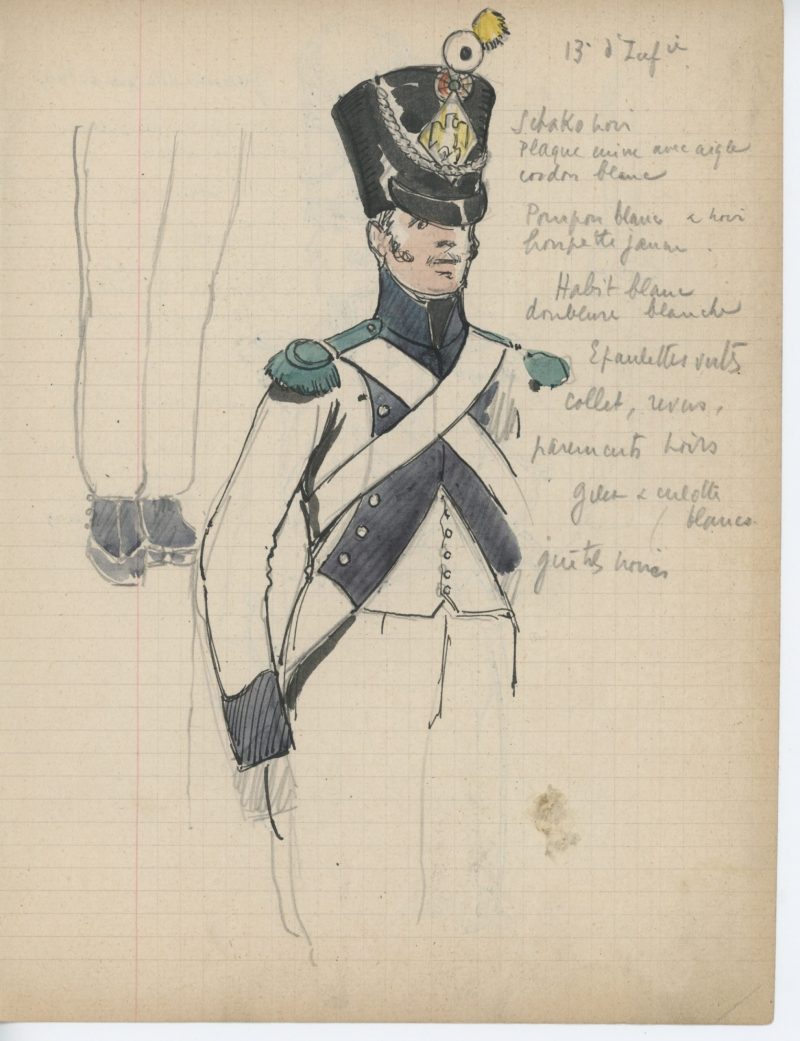 13e d'Infie
Schako noir
Plaque cuivre avec aigle
cordon blanc
Pompon blanc & noir
houpette jaune.
Habit blanc
doublure blanche
Epaulettes vertes
collet, revers,
parements noirs
gilet & culotte
blancs.
guêtres noires